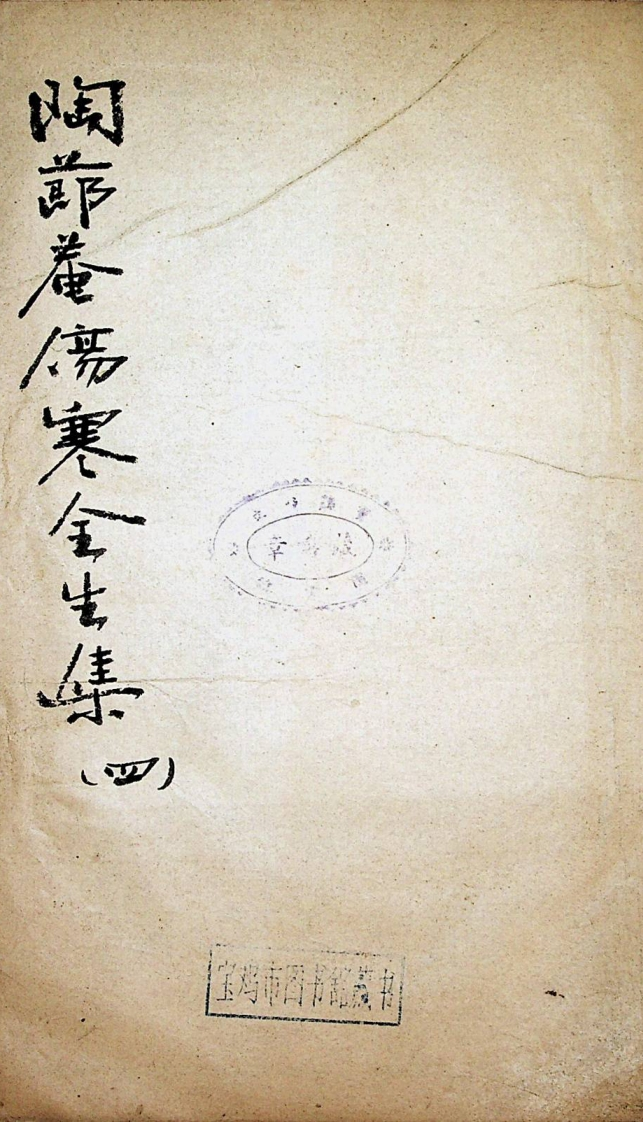 陶節菴傷寒全生集
(四)
宝鸡市图书馆藏书